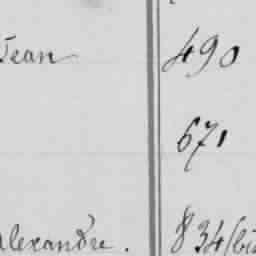 Jean 490
671
Alexandre. 834 (bis